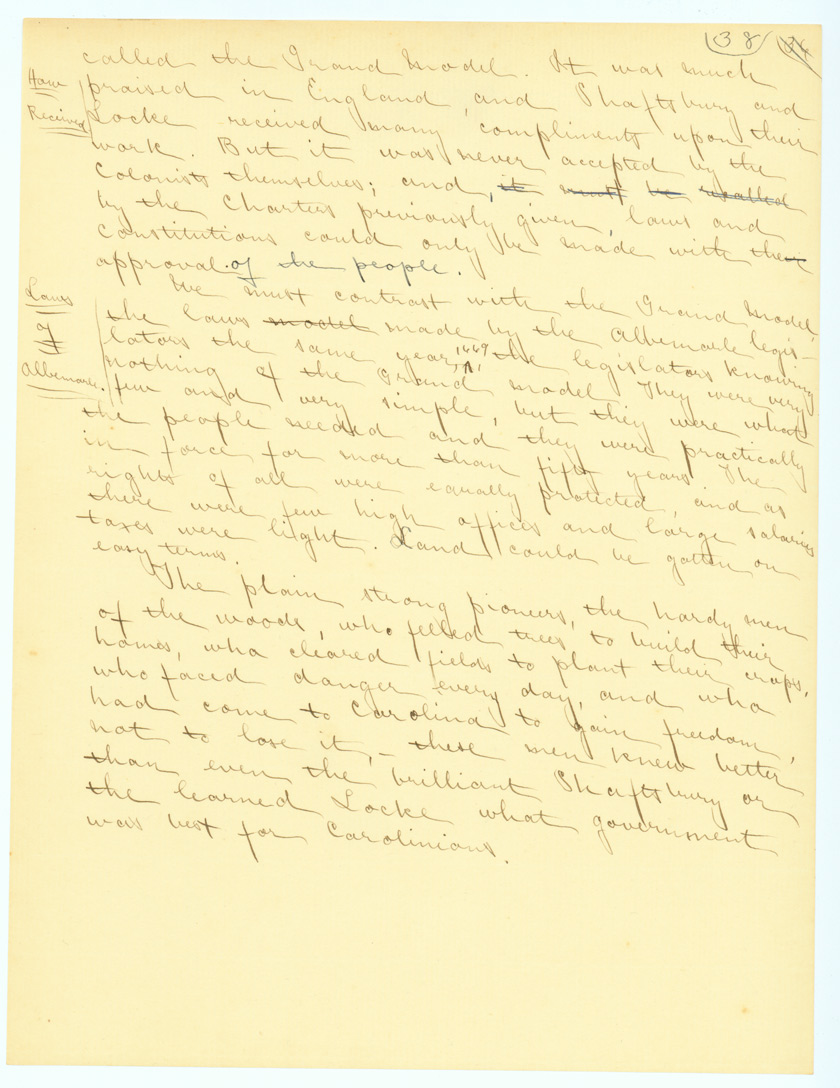 (38) 34
called the Grand Model. It was much
How
praised in England, and Shaftsbury and
Received
Locke received many compliments upon their
work. But it was never accepted by the
Colonists themselves; and, it must be recalled
by the Charters previously given, laws and
constitutions could only be made with their
approval of the people.
We must contrast with the Grand Model
Laws
of
Albemarle.
the laws model made by the Albemarle legis-
lators the same year, 1669, the legislators knowing
nothing of the Grand Model. They were very
few and very simple, but they were what
the people needed and they were practically
in force for more than fifty years. The
rights of all were equally protected, and as
there were few high offices and large salaries
taxes were light. Land could be gotten on
easy terms.
The plain strong pioneers, the hardy men
of the woods, who felled trees to build their
homes, who cleared fields to plant their crops,
who faced danger every day, and who
had come to Carolina to gain freedom,
not to lose it,— these men knew better
than even the brilliant Shaftsbury or
the learned Locke what government
was best for Carolinians.